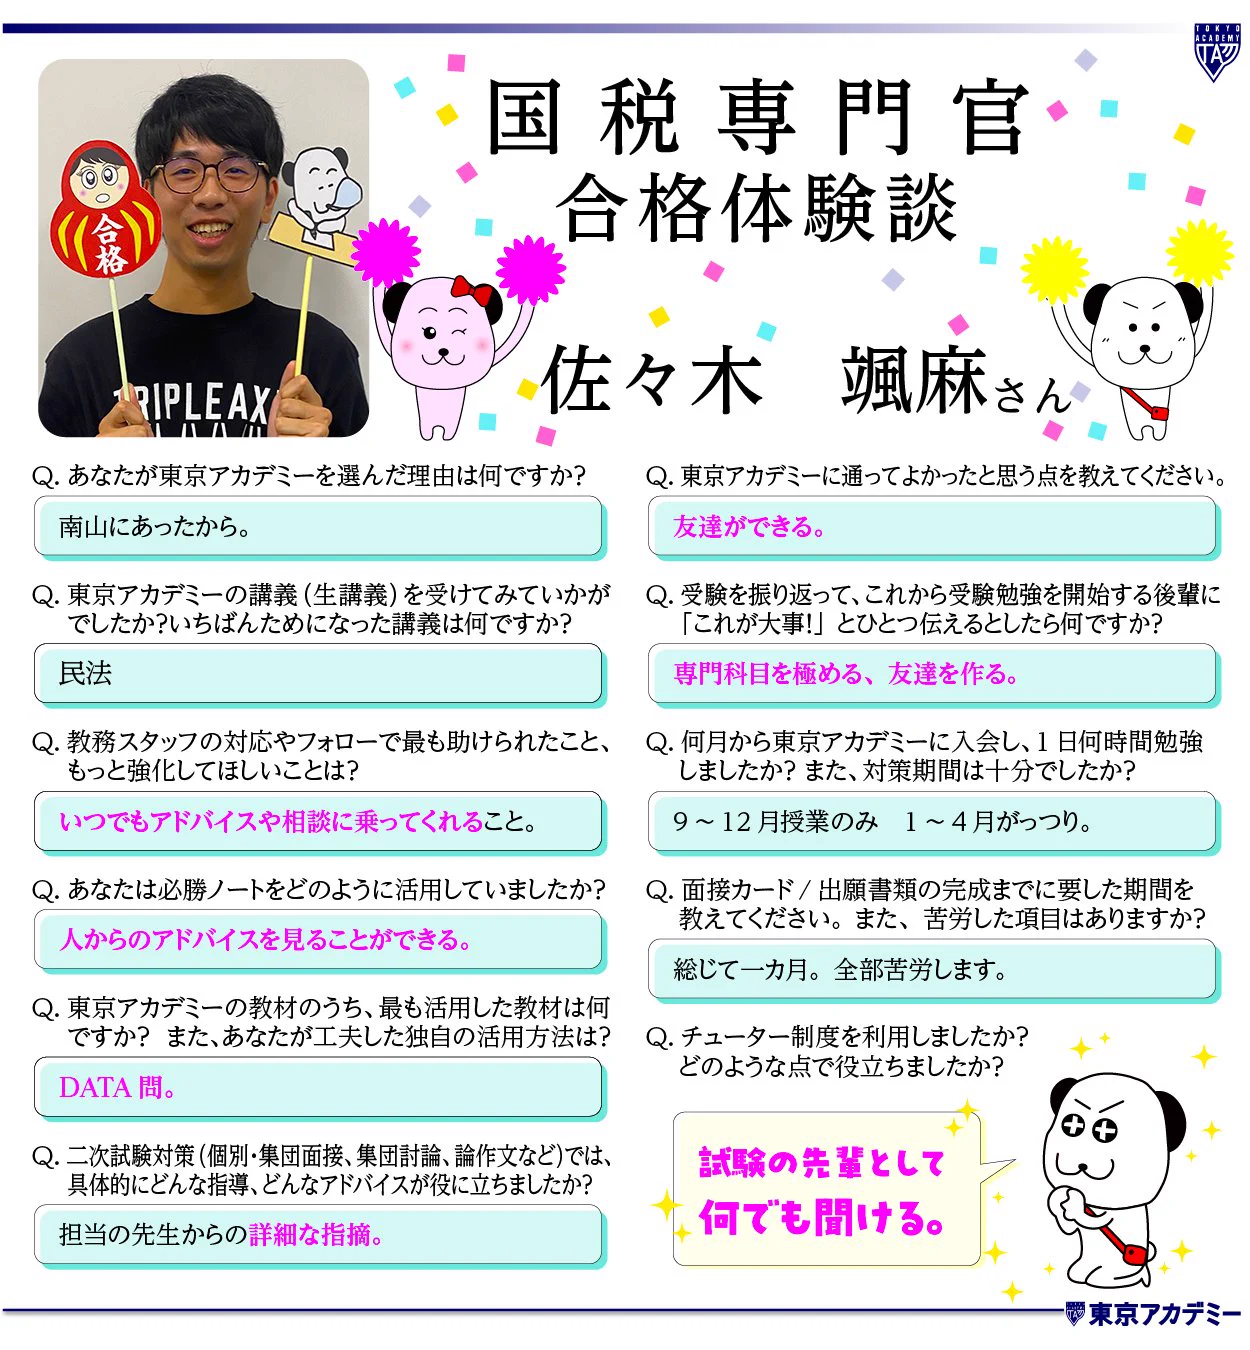 TOKYO
ACADEMY
TA
国税専門官
合格体験談
合格
TRIPLEAX
佐々木 颯麻さん
Q. あなたが東京アカデミーを選んだ理由は何ですか?
南山にあったから。
Q. 東京アカデミーの講義(生講義)を受けてみていかが
でしたか?いちばんためになった講義は何ですか?
民法
Q. 教務スタッフの対応やフォローで最も助けられたこと、
もっと強化してほしいことは?
いつでもアドバイスや相談に乗ってくれること。
Q. あなたは必勝ノートをどのように活用していましたか?
人からのアドバイスを見ることができる。
Q. 東京アカデミーの教材のうち、最も活用した教材は何
ですか? また、あなたが工夫した独自の活用方法は?
DATA問。
Q. 二次試験対策(個別・集団面接、集団討論、論作文など)では、
具体的にどんな指導、どんなアドバイスが役に立ちましたか?
担当の先生からの詳細な指摘。
Q. 東京アカデミーに通ってよかったと思う点を教えてください。
友達ができる。
Q. 受験を振り返って、これから受験勉強を開始する後輩に
「これが大事!」とひとつ伝えるとしたら何ですか?
専門科目を極める、友達を作る。
Q. 何月から東京アカデミーに入会し、1日何時間勉強
しましたか? また、対策期間は十分でしたか?
9~12月授業のみ 1~4月がっつり。
Q. 面接カード/出願書類の完成までに要した期間を
教えてください。また、苦労した項目はありますか?
総じて一カ月。全部苦労します。
Q. チューター制度を利用しましたか?
どのような点で役立ちましたか?
試験の先輩として
何でも聞ける。
東京アカデミー